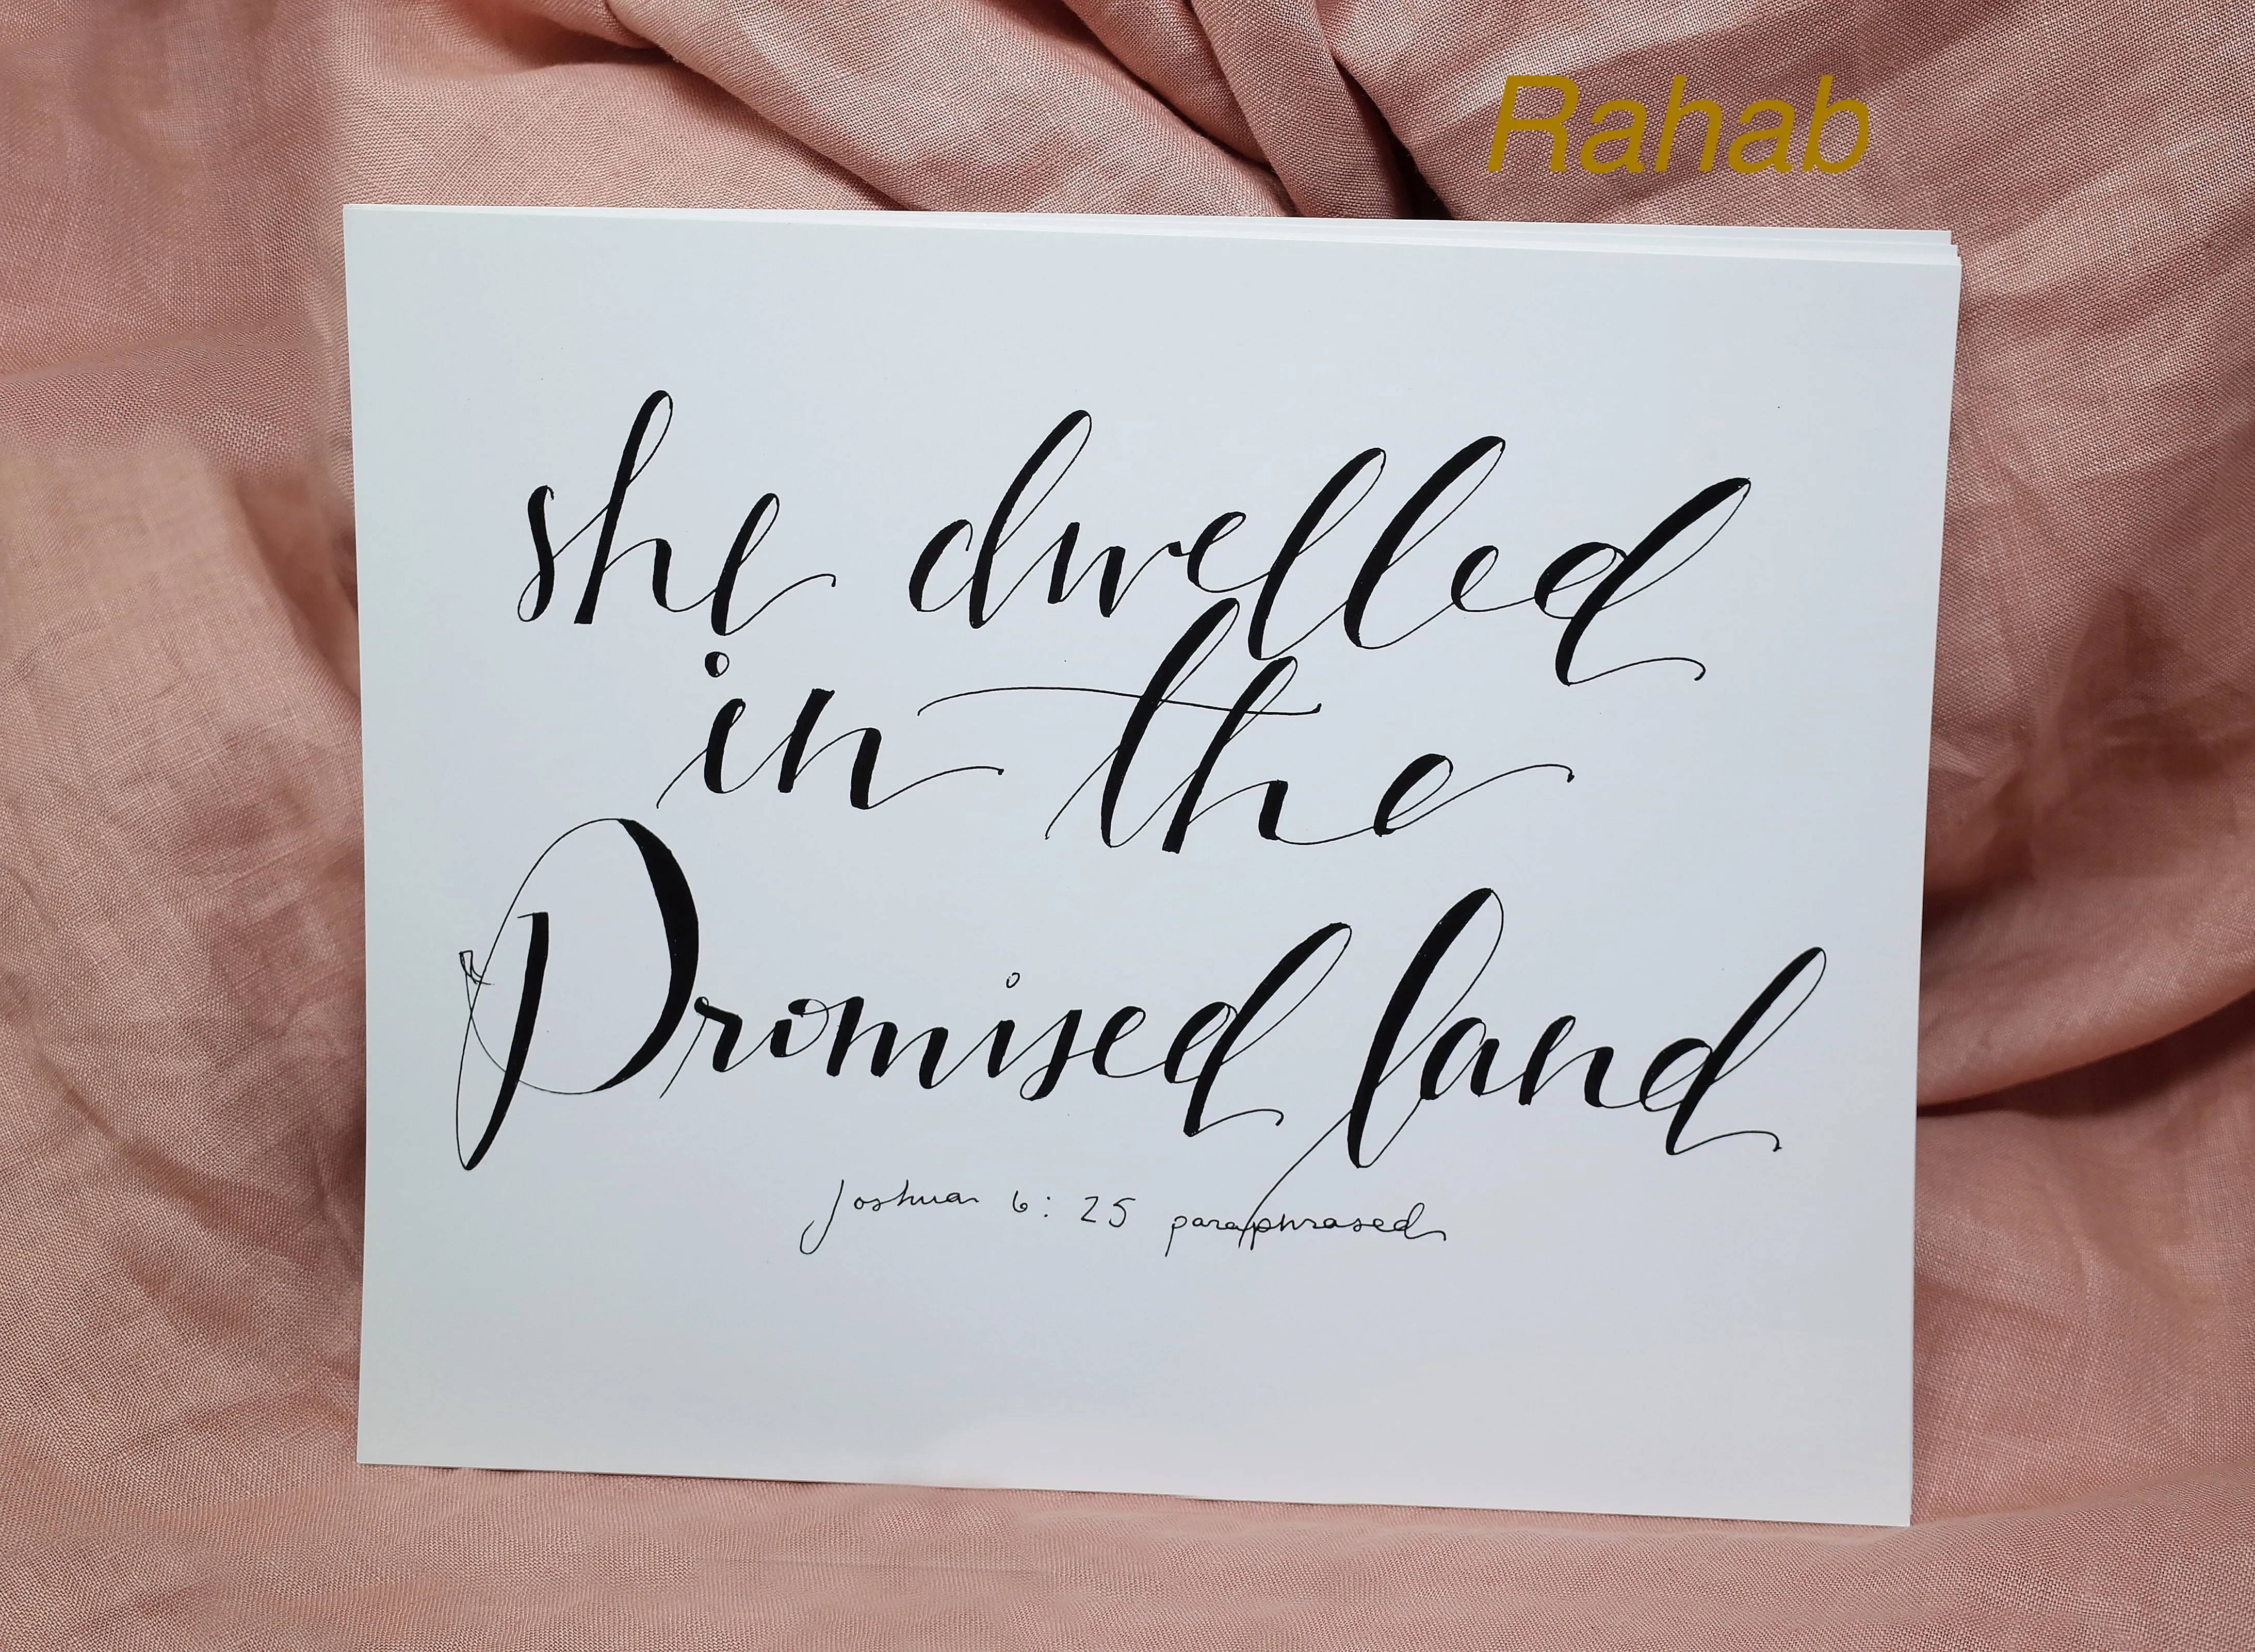 Rahab
she dwelled
in the
Promised land
Joshua 6:25 paraphrased